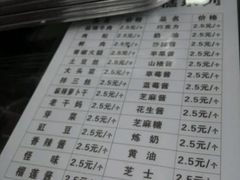 品名 价格
肉松 2.5元/个 奶油 2.5元/个
2.5元/个 沙拉酱 2.5元/个
2.5元/个 苹果酱 2.5元/个
土豆丝 2.5元/个 山楂酱 2.5元/个
大头菜 2.5元/个 草莓酱 2.5元/个
拌三丝 2.5元/个 蓝莓酱 2.5元/个
麻辣萝卜干 2.5元/个 芝麻酱 2.5元/个
老干妈 2.5元/个 花生酱 2.5元/个
芽菜 2.5元/个 芝麻糖 2.5元/个
豇豆 2.5元/个 炼奶 2.5元/个
香辣酱 2.5元/个 黄油 2.5元/个
怪味 2.5元/个 芝士 2.5元/个
榴莲酱 2.5元/个